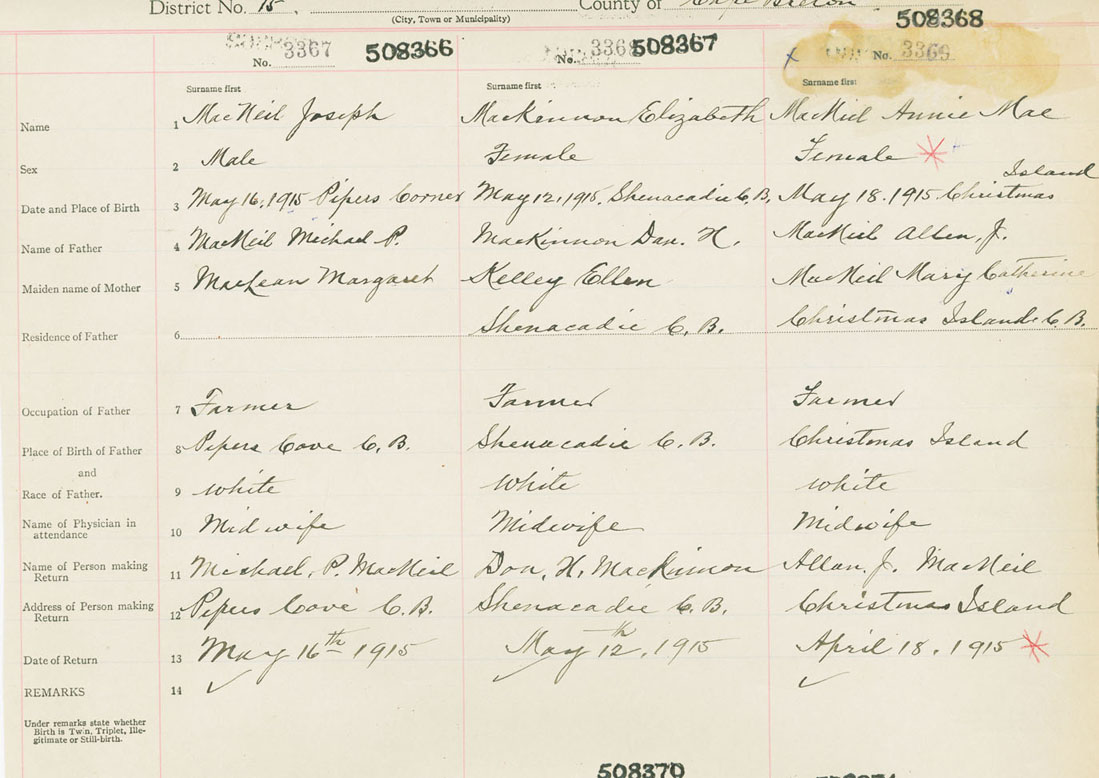 District No. 15, County of Cape Breton
(City, Town or Municipality)
No. 3367 508366 No. 336 508367 No. 3369 508368
Surname first Surname first Surname first
Name 1 MacNeil Joseph MacKinnon Elizabeth MacNeil Annie Mae
Sex 2 Male Female Female
Island
Date and Place of Birth 3 May 16, 1915 Pipers Corner May 12, 1915, Shenacadie C.B, May 18. 1915 Christmas
Name of Father 4 MacNeil Michael P. MacKinnon Dan. H. MacNeil Allen, J.
Maiden name of Mother 5 MacLean Margaret Kelley Ellen MacNeil Mary Catherine
Residence of Father 6 Shenacadie C. B. Christmas Island. C. B.
Occupation of Father 7 Farmer Farmer Farmer
Place of Birth of Father 8 Pipers Cove C. B. Shenacadie C. B. Christmas Island
and
Race of Father. 9 White White White
Name of Physician in attendance 10 Midwife Midwife Midwife
Name of Person making Return 11 Michael, P. MacNeil Dan, H. MacKinnon Allan, J. MacNeil
Address of Person making Return 12 Pipers Cove C. B. Shenacadie C. B. Christmas Island
Date of Return 13 May 16th 1915 May 12th, 1915 April 18, 1915
REMARKS 14
Under remarks state whether
Birth is Twin, Triplet, Ille-
gitimate or Still-birth.
508370